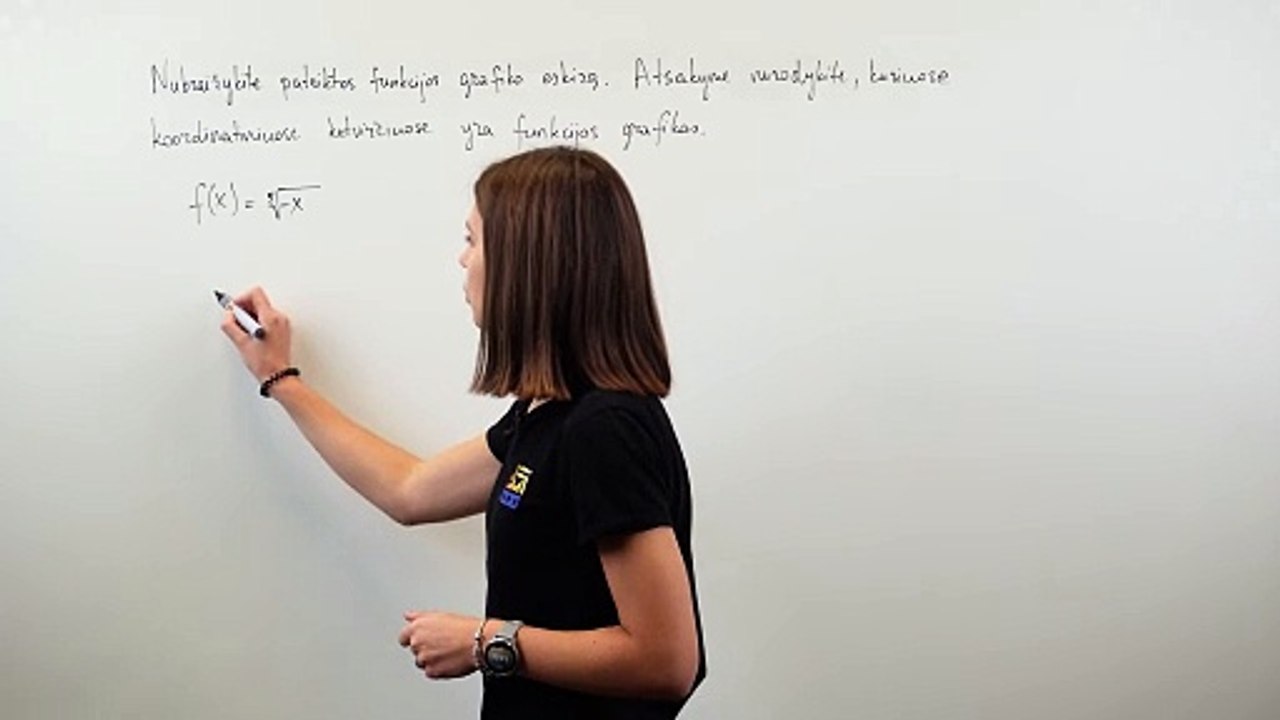 Nubraižykite pateiktos funkcijos grafiko eskizą. Atsakyme nurodykite, kuriuose
koordinatiniuose ketvirčiuose yra funkcijos grafikas.
f(x) = √-x